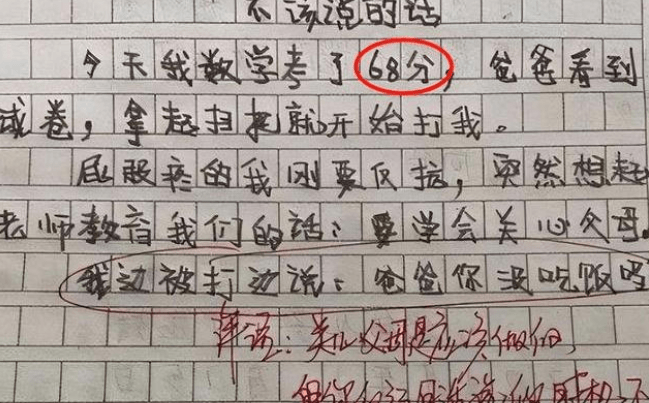 不该说的话
今天我数学考了68分，爸爸看到
试卷，拿起扫把就开始打我。
屁股疼的我刚要反抗，突然想起
老师教育我们的话：要学会关心父母。
我边被打边说：爸爸你没吃饭吗
评语：关心父母是应该做的，